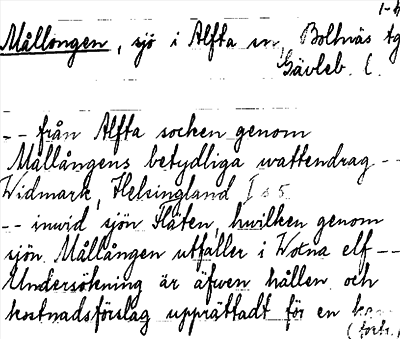 1-4
Mållongen, sjö i Alfta sn, Bollnäs tg
Gävleb. l.
-- från Alfta socken genom
Mållångens betydliga wattendrag --
Widmark, Helsingland I s 5
-- inwid sjön Flåten, hwilken genom
sjön Mållången utfaller i Woxna elf --
Undersökning är äfwen hållen och
kostnadsförslag upprättadt för en
(forts.)